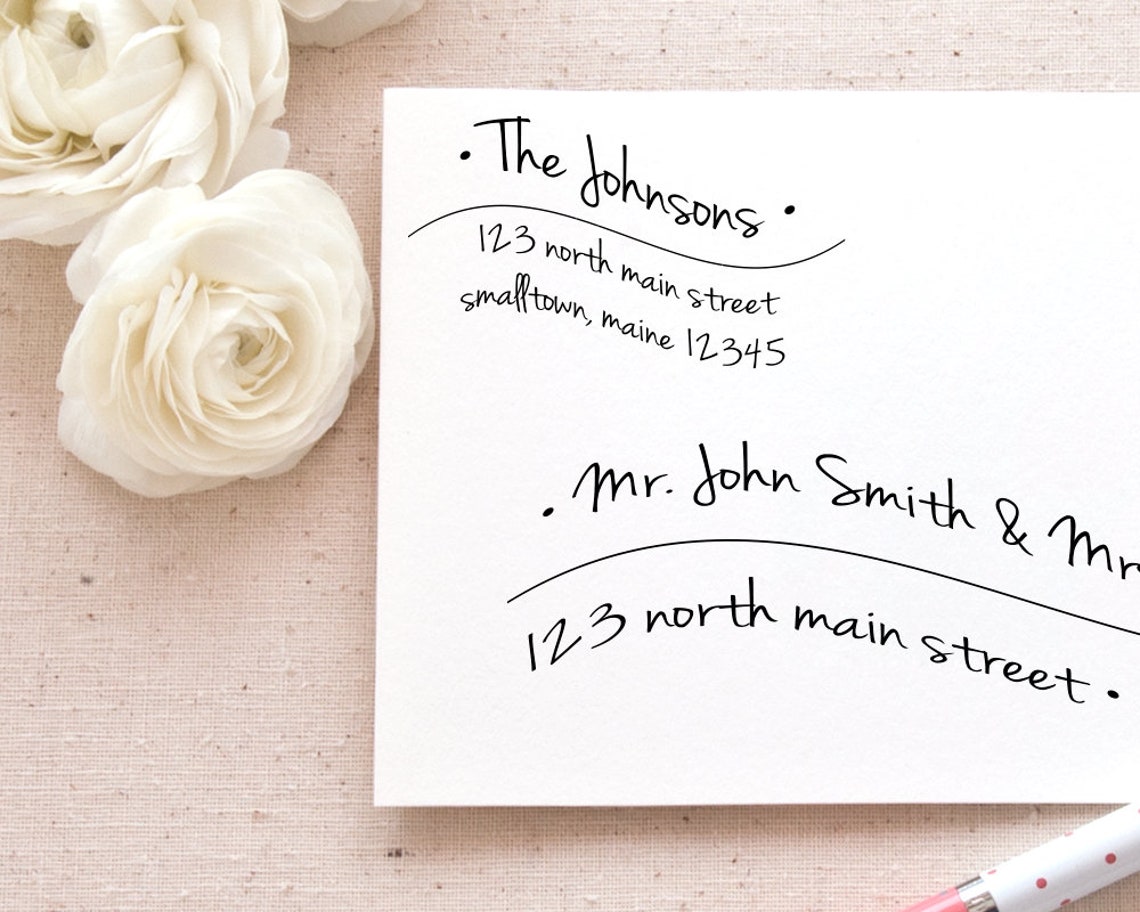 • The Johnsons •
123 north main street
smalltown, maine 12345
• Mr. John Smith & Mr
123 north main street •